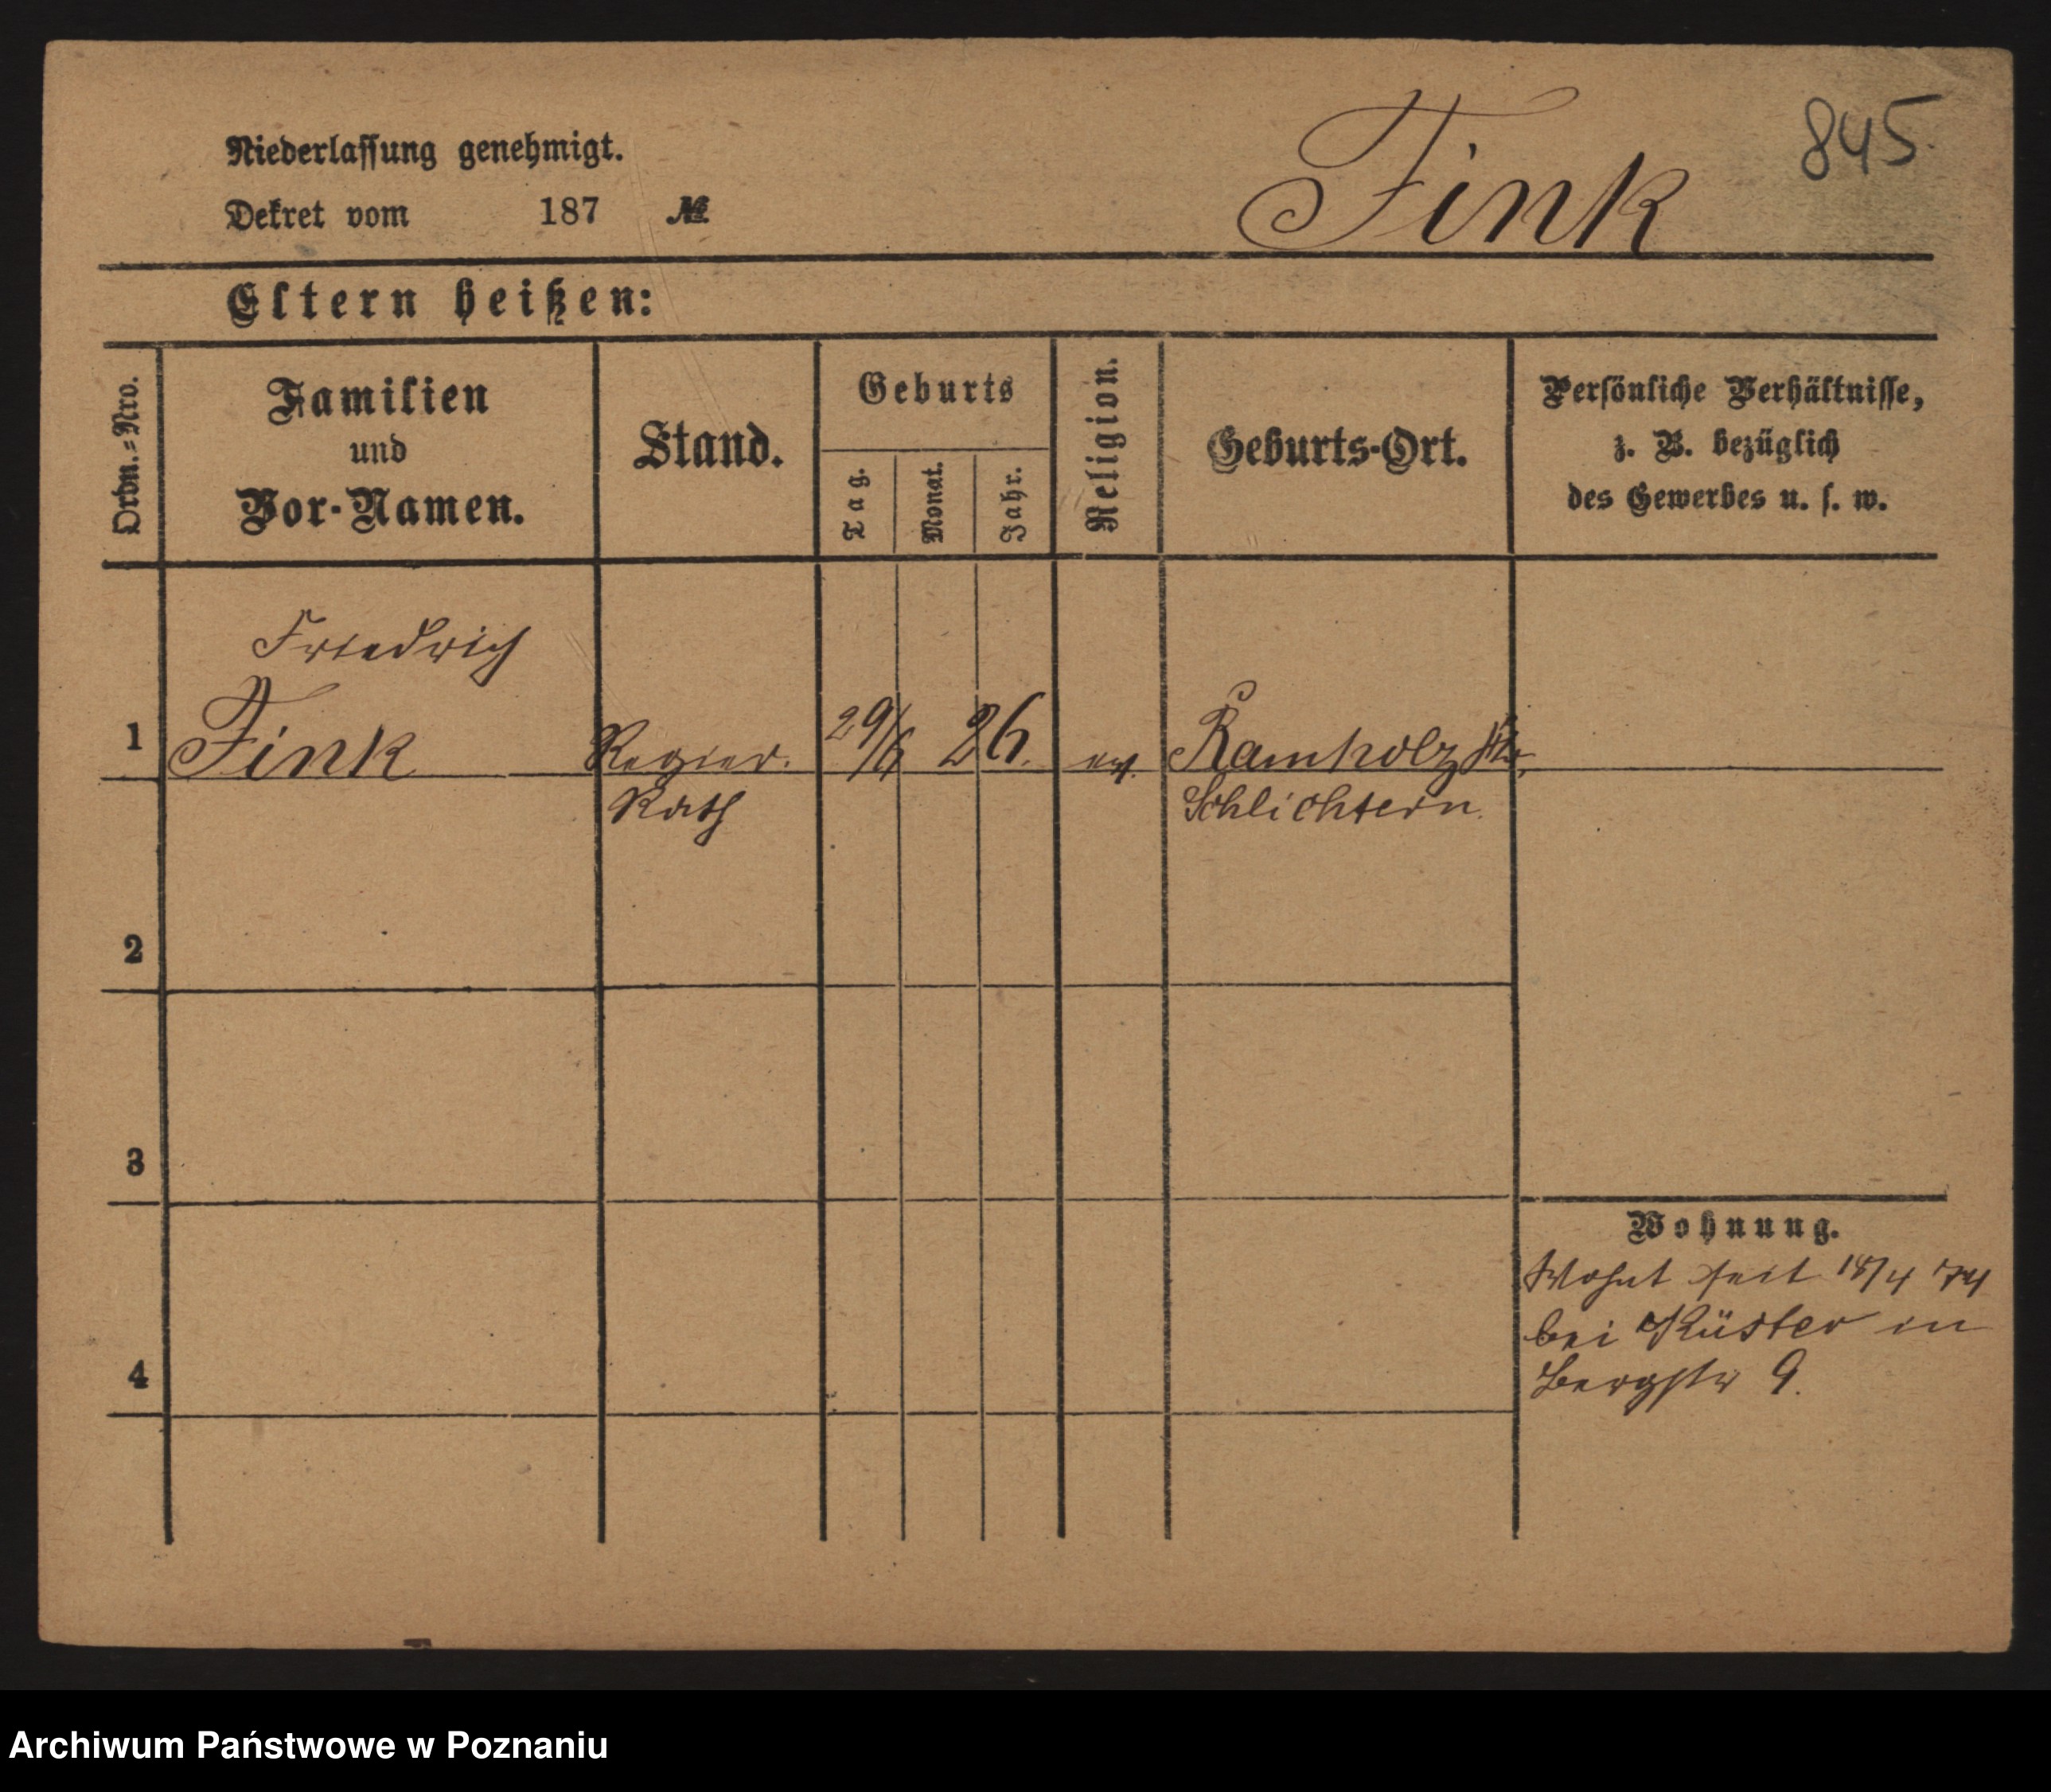 845.
Fink
Niederlassung genehmigt.
Dekret vom 187 №
Eltern heißen:
Ordn.-Nro.
Familien
und
Vor-Namen.
Stand.
Geburts
Tag.
Monat.
Jahr.
Religion.
Geburts-Ort.
Persönliche Verhältnisse,
z. B. bezüglich
des Gewerbes u. s. w.
Friedrich
1 Fink Regier. 29/6 26. ev. Ramholz
Rath Schlichtern.
2
3
4
Wohnung.
Wohnt seit 18/4 74
bei Küster in
Bergstr 9.
Archiwum Państwowe w Poznaniu